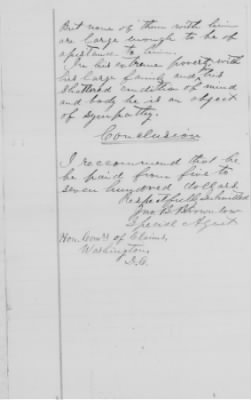 But none of them with him
are large enough to be of
assistance to him.
In his extreme poverty with
his large family and his
shattered condition of mind
and body he is an object
of sympathy.
Conclusion
I reccommend that he
be paid from five to
seven hundred dollars.
Respectfully Submitted
Jno B Brownlow
Special Agent
Hon. Com'rs of Claims,
Washington,
D.C.